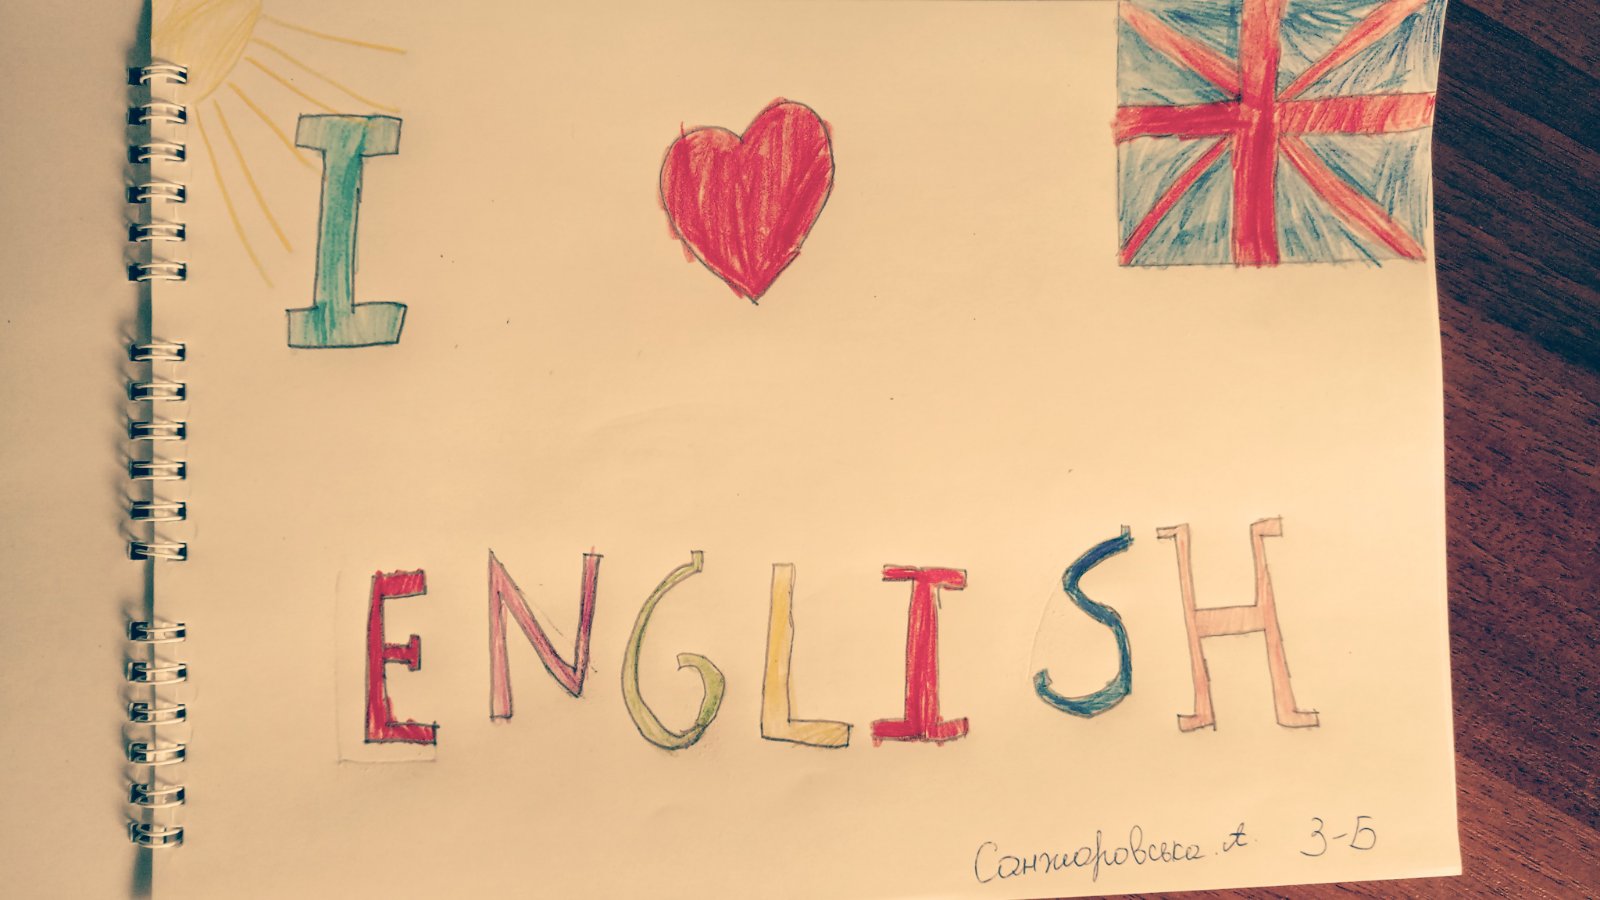 I
ENGLISH
Санжаровська. А. 3-Б